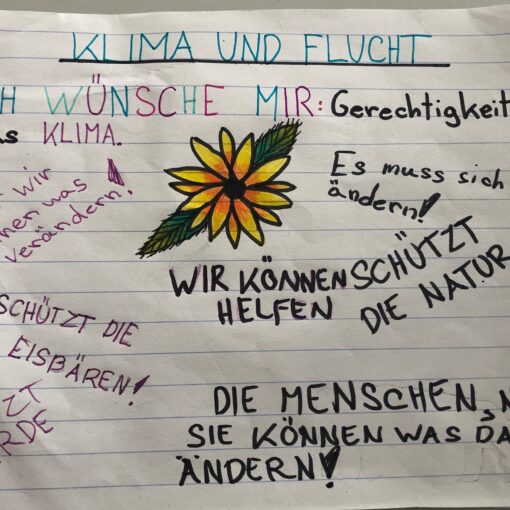 KLIMA UND FLUCHT
H WÜNSCHE MIR: Gerechtigkeit
KLIMA.
wir
was
verändern!
Es muss sich
ändern!
WIR KÖNNEN
HELFEN
SCHÜTZT
DIE NATUR
SCHÜTZT DIE
EISBÄREN!
DIE MENSCHEN,
SIE KÖNNEN WAS DA
ÄNDERN!